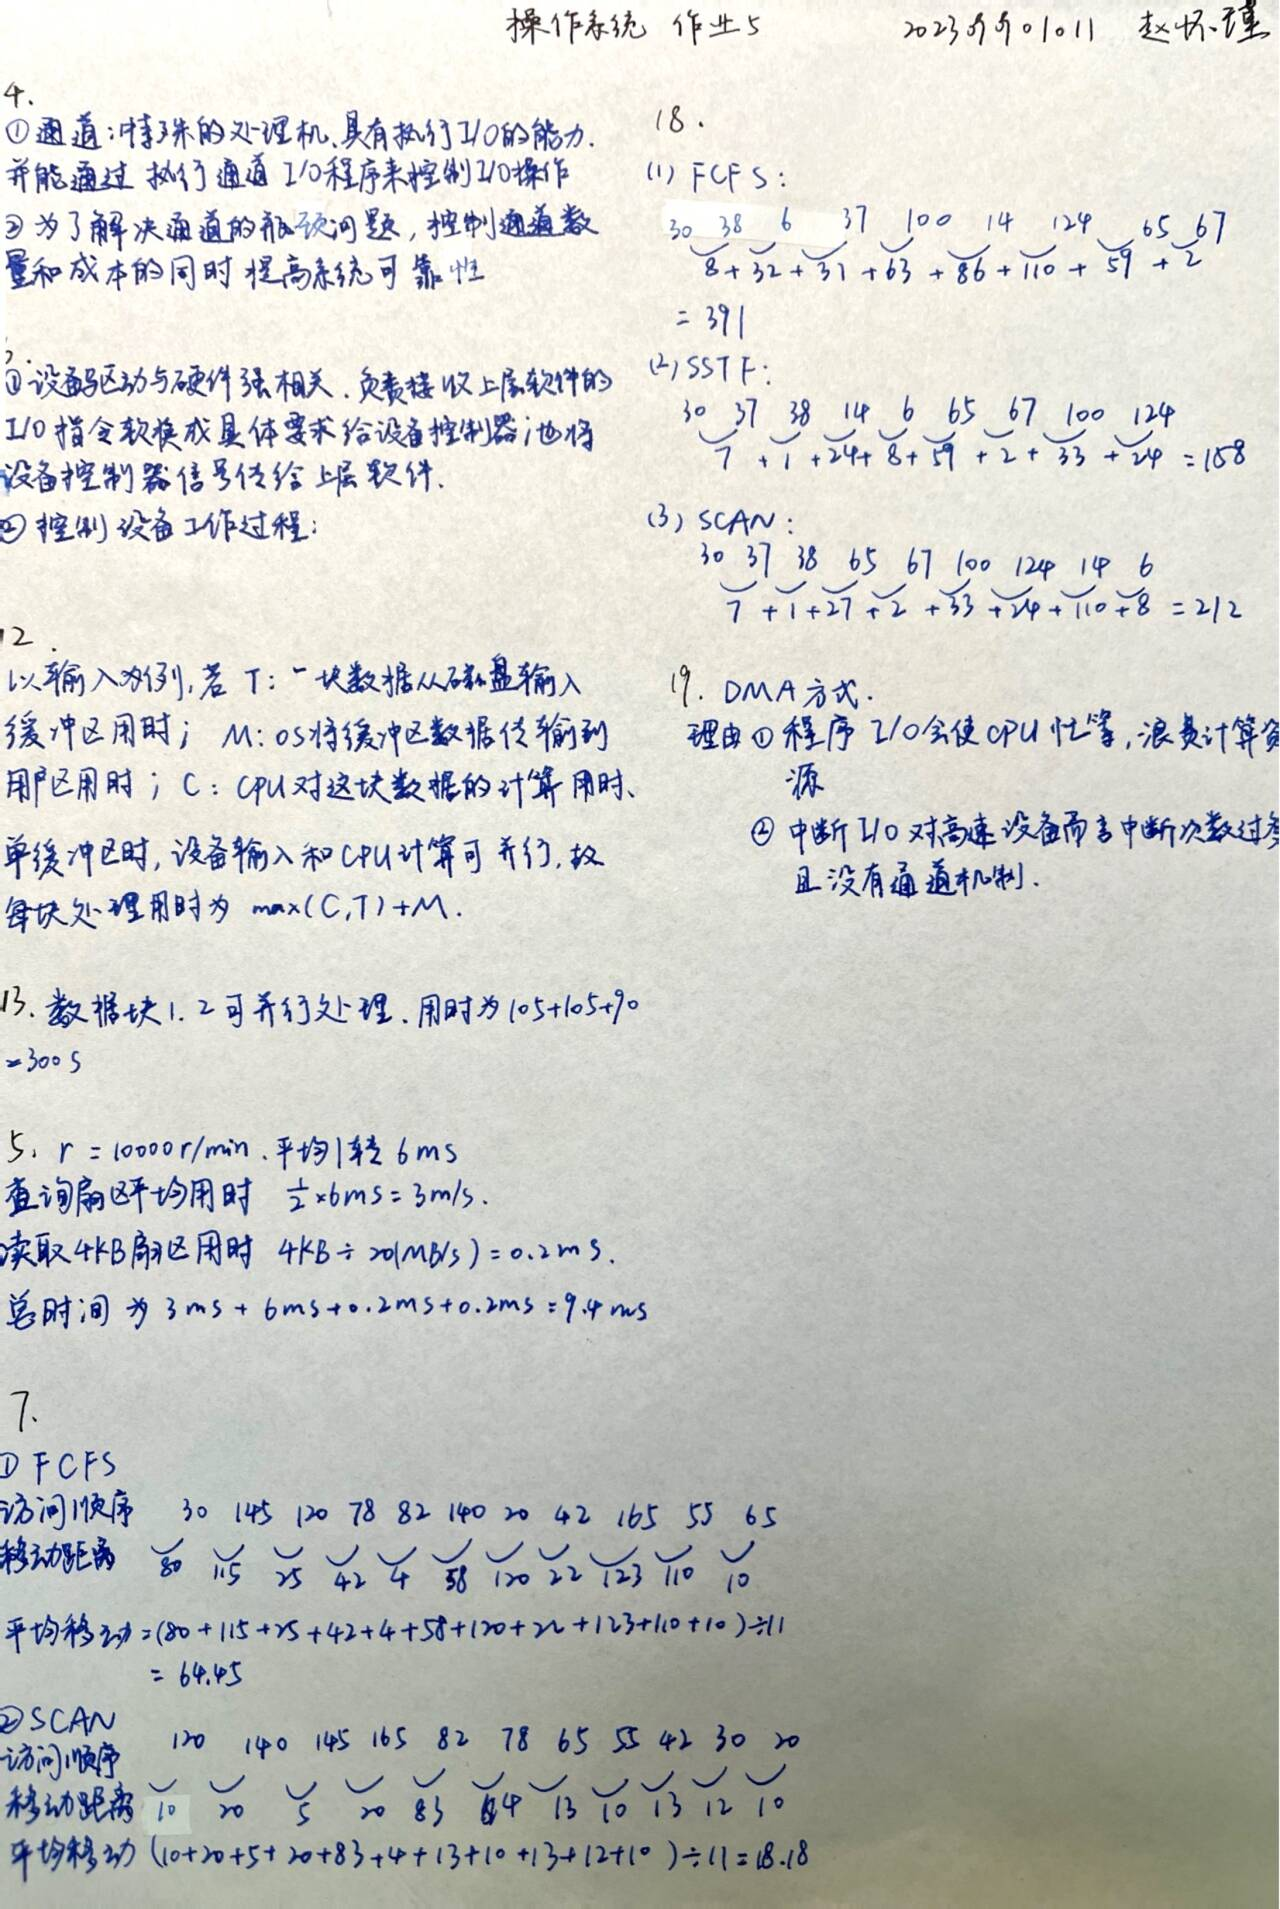 操作系统 作业5 20239901011 赵怀瑾
4.
①通道:特殊的处理机,具有执行I/O的能力.
并能通过 执行通道 I/O程序来控制I/O操作
②为了解决通道的瓶颈问题,控制通道数
量和成本的同时提高系统可靠性
①设备驱动与硬件强相关.负责接收上层软件的
I/O指令转换成具体要求给设备控制器;也将
设备控制器信号传给上层软件.
②控制设备工作过程:
12.
以输入为例,若 T:一块数据从磁盘输入
缓冲区用时; M:OS将缓冲区数据传输到
用户区用时; C:CPU对这块数据的计算用时、
单缓冲区时,设备输入和CPU计算可并行,故
每块处理用时为 max(C,T)+M.
13.数据块1.2可并行处理.用时为105+105+90
=300s
5. r=10000r/min.平均1转6ms
查询扇区平均用时 1/2×6ms=3m/s.
读取4KB扇区用时 4KB÷20(MB/s)=0.2ms.
总时间为 3ms+6ms+0.2ms+0.2ms=9.4ms
7.
①FCFS
访问顺序 30 145 120 78 82 140 20 42 165 55 65
移动距离 80 115 25 42 4 58 120 22 123 110 10
平均移动=(80+115+25+42+4+58+120+22+123+110+10)÷11
=64.45
②SCAN
访问顺序 120 140 145 165 82 78 65 55 42 30 20
移动距离 10 20 5 20 83 4 13 10 13 12 10
平均移动 (10+20+5+20+83+4+13+10+13+12+10)÷11=18.18
18.
(1) FCFS:
30 38 6 37 100 14 124 65 67
8+32+31+63+86+110+59+2
=391
(2)SSTF:
30 37 38 14 6 65 67 100 124
7+1+24+8+59+2+33+24=158
(3) SCAN:
30 37 38 65 67 100 124 14 6
7+1+27+2+33+24+110+8=212
19. DMA方式.
理由①程序 I/O会使CPU忙等,浪费计算资
源
②中断I/O对高速设备而言中断次数过多
且没有通道机制.